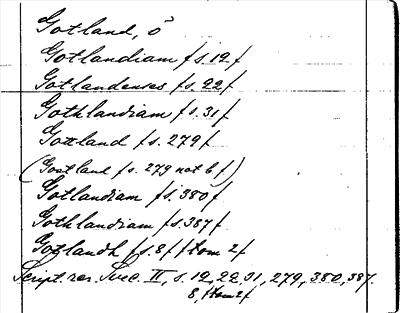 Gotland, ö
Gotlandiam /s. 12/
Gotlandenses /s. 22/
Gothlandiam /s. 31/
Gottland /s. 279/
(Gostland /s. 279 not b/)
Gotlandiam /s. 380/
Gothlandiam /s. 387/
Gotlandh /s. 8/ /tom 2/
Script. rer. Svec. II, s. 12, 22, 31, 279, 380, 387.
8, /tom 2/